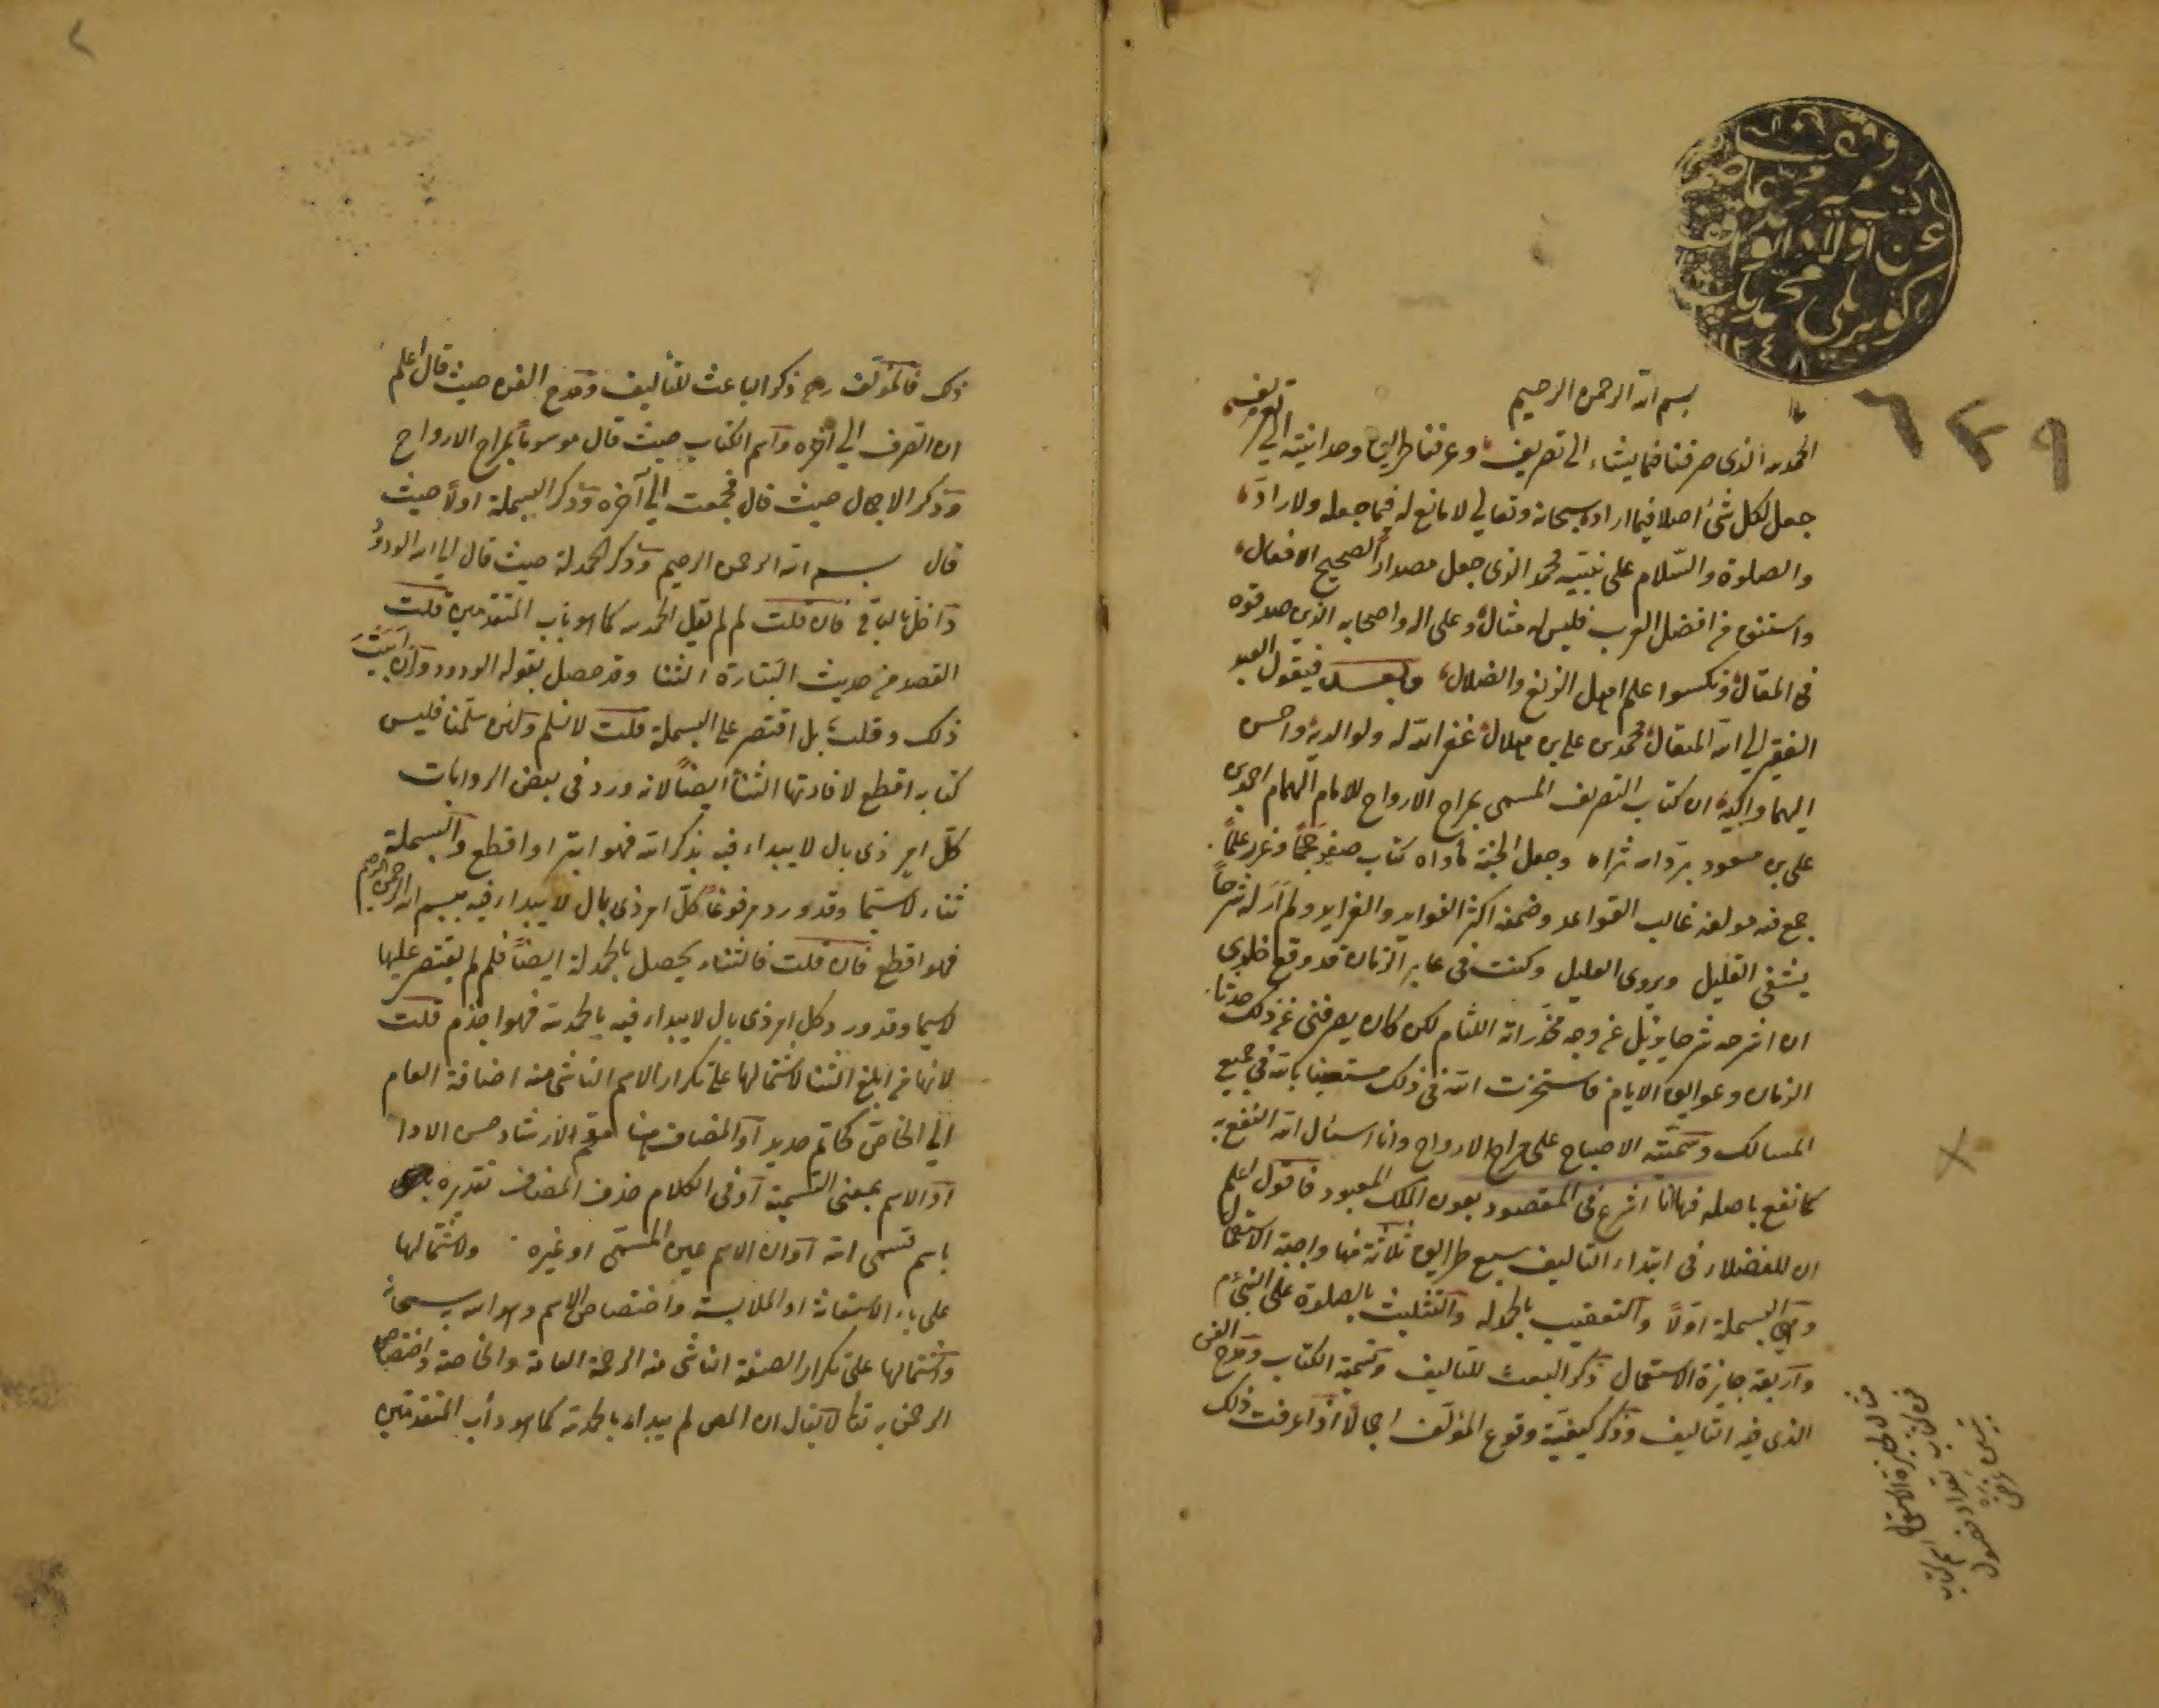 بسم الله الرحمن الرحيم
الحمد لله الذى صرفنا فيما يشاء الى تصريف وعرفنا طرايق وحدانيته الى التعريف
جعل لكل شئ اصلا فيما اراده سبحانه وتعالى لا مانع له فيما جعله ولا راد
والصلوة والسلام على نبيه محمد الذى جعل مصدار الصحيح الافعال
من افضل العرب فليس له مثال وعلى اله واصحابه الذين صدقوه
فى المقال ونكسوا علم اهل الزيغ والضلال وبعد فيقول العبد
الفقير الى الله المتعال محمد بن على بن هلال غفر الله له ولوالديه واحسن
اليهما واليه ان كتاب التصريف المسمى بمراح الارواح للامام الهمام احمد بن
على بن مسعود برد الله ثراه وجعل الجنة مأواه كتاب صغير حجما وغزر علما
جمع فيه مولفه غالب القواعد وضمنه اكثر الفوايد والفرايد ولم أر له شرحا
يشفى الغليل ويروى العليل وكنت فى غابر الزمان قد وقع خلدى
ان اشرحه شرحا يزيل عن وجه مخدراته اللثام لكن كان يصرفنى عن ذلك حدثان
الزمان وعوايق الايام فاستخرت الله فى ذلك مستعينا بالله فى جميع
المسالك وسميته الاصباح على مراح الارواح وانا اسئال الله النفع به
كما نفع باصله فها انا اشرع فى المقصود بعون الملك المعبود فاقول اعلم
ان للفضلاء فى ابتداء التاليف سبع طرايق ثلاثة منها واجبة الاستعمال
وهى البسملة اولا والتعقيب بالحمدلة والتثليث بالصلوة على النبى م
واربعة جايزة الاستعمال ذكر البعث للتاليف وتسمية الكتاب ومدح الفن
الذى فيه التاليف وذكر كيفية وقوع المؤلف اجمالا اذا عرفت ذلك
ذلك فالمؤلف رح ذكر الباعث للتأليف ومدح الفن حيث قال اعلم
ان الصرف الى اخره واسم الكتاب حيث قال موسوما بمراح الارواح
وذكر الاجمال حيث قال فجمعت الى آخره وذكر البسملة اولا حيث
قال بسم الله الرحمن الرحيم وذكر الحمدلة حيث قال الى الله الودود
واخل بالباقى فان قلت لم لم يقل الحمد لله كما هو باب المتقدمين قلت
القصد من حديث البتارة الثنا وقد حصل بقوله الودود وان ابيت
ذلك وقلت بل اقتصر على البسملة قلت لا نسلم ولئن سلمنا فليس
كتابه اقطع لافادتها الثنأ ايضا لانه ورد فى بعض الروايات
كل امر ذى بال لا يبداء فيه بذكر الله فهو ابتر او اقطع والبسملة
ثناء لاسيما وقد ورد مرفوعا كل امر ذى بال لا يبداء فيه ببسم الله الرحمن الرحيم
فهو اقطع فان قلت فالثناء يحصل بالحمدلة ايضا فلم لم يقتصر عليها
لاسيما وقد ورد وكل امر ذى بال لا يبداء فيه بالحمد لله فهو اجذم قلت
لانها من ابلغ الثنا لاشتمالها على تكرار الاسم الناشى منه اضافة العام
الى الخاص كخاتم حديد او المضاف هنا مقحم لارشاد حسن الادا
او الاسم بمعنى التسمية او فى الكلام حذف المضاف تقديره
باسم مسمى الله او ان الاسم عين المسمى او غيره ولاشتمالها
على باء الاستعانة او الملابسة واختصاص الاسم وهو الله سبحانه
واشتمالها على تكرار الصفة الناشى منه الرحمة العامة والخاصة واختصاص
الرحمن به تعالى لا يقال ان المص لم يبداء بالحمد لله كما هو دأب المتقدمين
٦٤٩
وقف
عن اولاد الواقف
كوبريلى محمد باشا
١٢٤٨
٢